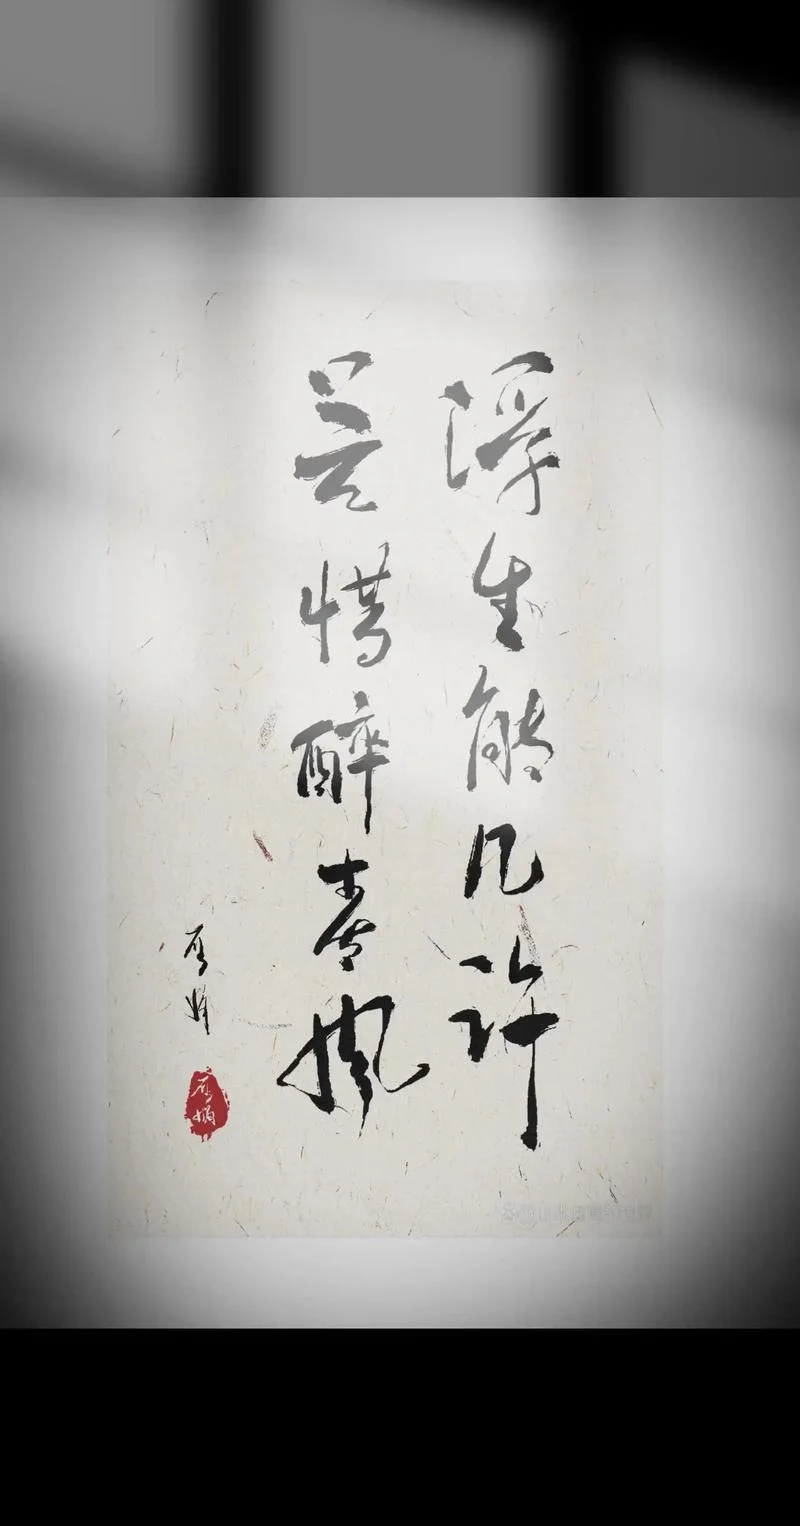 浮生能几许
莫惜醉春风